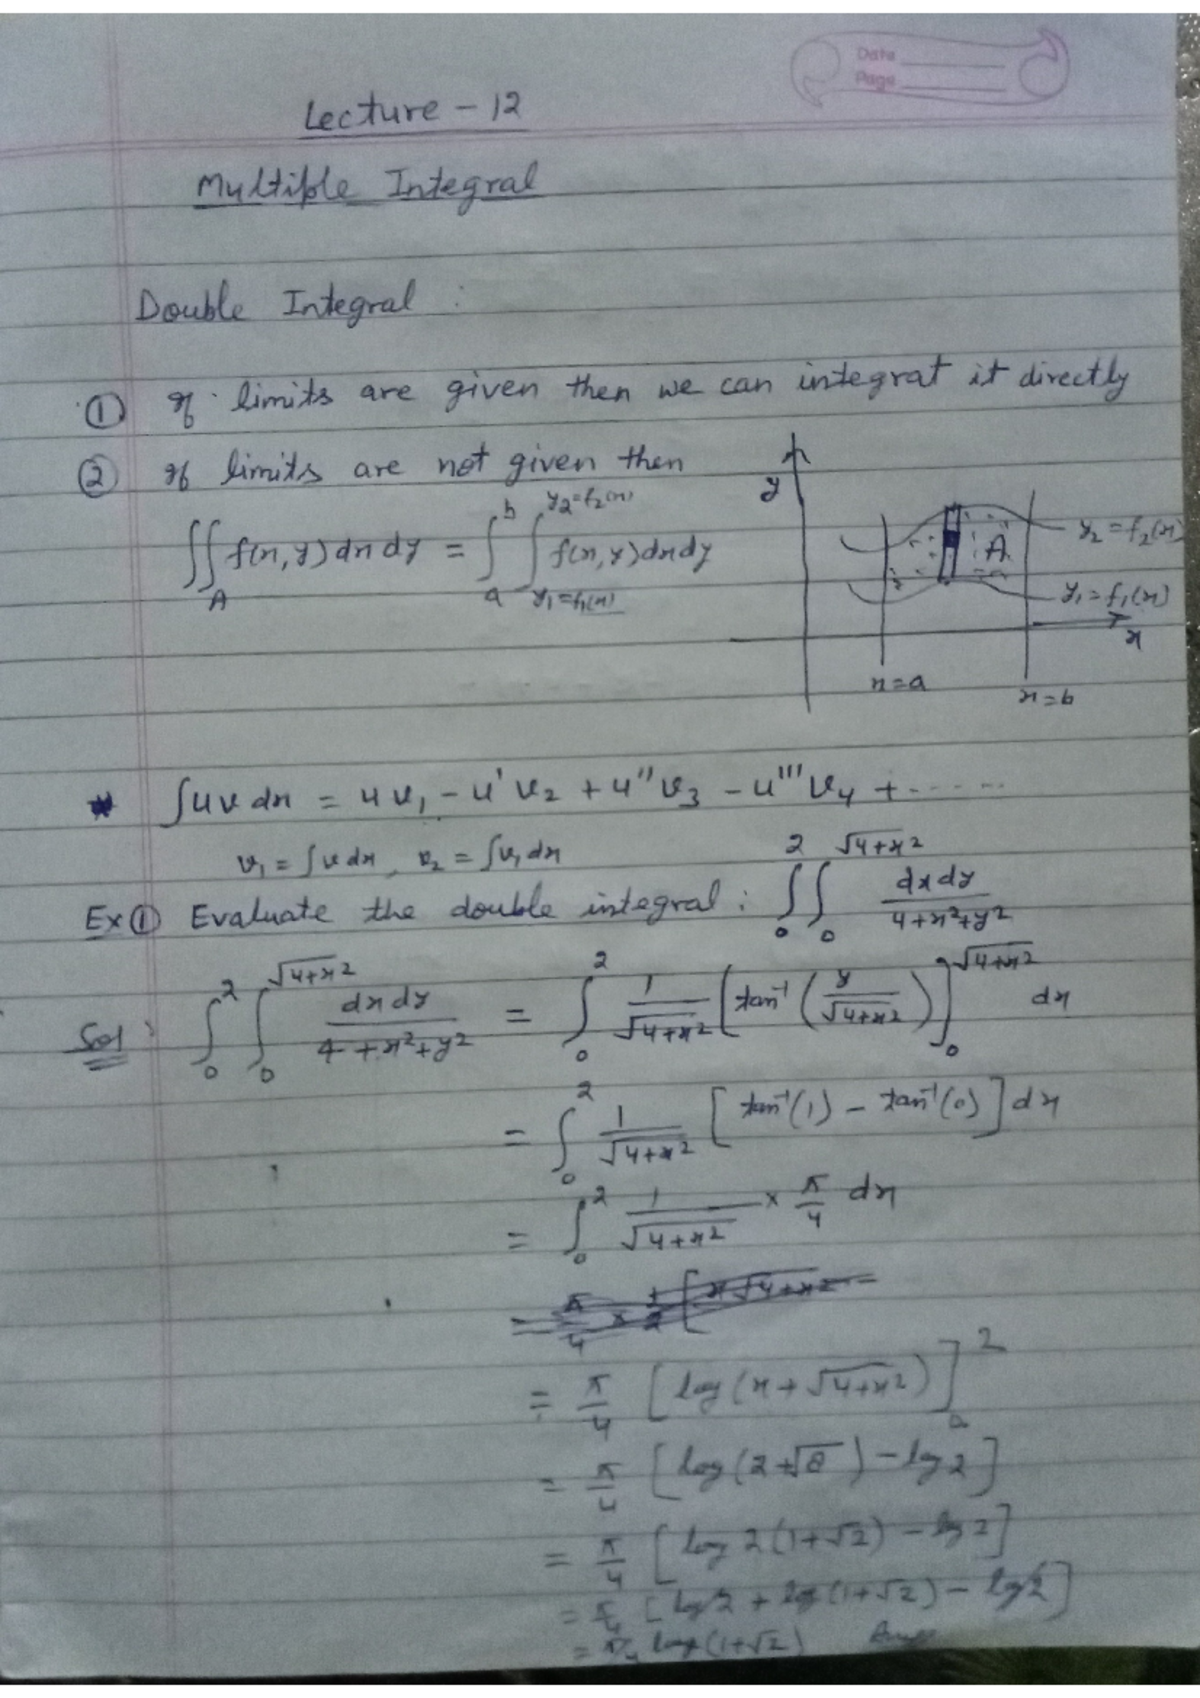 Date
Page
Lecture - 12
Multiple Integral
Double Integral :
① If limits are given then we can integrat it directly
② If limits are not given then
∬_A f(x,y) dx dy = ∫_a^b ∫_{y₁=f₁(x)}^{y₂=f₂(x)} f(x,y) dx dy
y
A
y₂ = f₂(x)
y₁ = f₁(x)
x
x=a
x=b
* ∫uv dx = uv₁ - u'v₂ + u''v₃ - u'''v₄ + ......
v₁ = ∫v dx, v₂ = ∫v₁ dx
Ex ① Evaluate the double integral : ∫_0^2 ∫_0^{√(4+x²)} dx dy / (4+x²+y²)
Sol : ∫_0^2 ∫_0^{√(4+x²)} dx dy / (4+x²+y²) = ∫_0^2 1/√(4+x²) [tan⁻¹(y/√(4+x²))]_0^{√(4+x²)} dx
= ∫_0^2 1/√(4+x²) [tan⁻¹(1) - tan⁻¹(0)] dx
= ∫_0^2 1/√(4+x²) × π/4 dx
= π/4 [log(x+√(4+x²))]_0^2
= π/4 [log(2+√8) - log 2]
= π/4 [log 2(1+√2) - log 2]
= π/4 [log 2 + log(1+√2) - log 2]
= π/4 log(1+√2) Ans